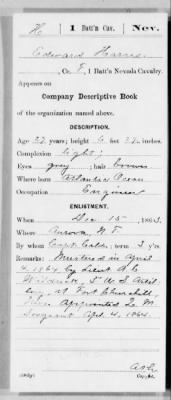 H 1 Batt'n Cav. Nev.
Edward Harris
, Co. E, 1 Batt'n Nevada Cavalry.
Appears on
Company Descriptive Book
of the organization named above.
DESCRIPTION.
Age 27 years; height 6 feet inches.
Complexion light;
Eyes grey; hair brown
Where born Atlantic Ocean
Occupation Engineer
ENLISTMENT.
When Dec 15, 1863.
Where Aurora, N.T.
By whom Capt. ; term 3 y'rs.
Remarks: Mustered in April
4, 1864, by Lieut A. E.
5" U.S. Artil-
lery, at Fort Churchill,
Appointed Q. M.
Sergeant Apr. 4, 1864.
Copyist.